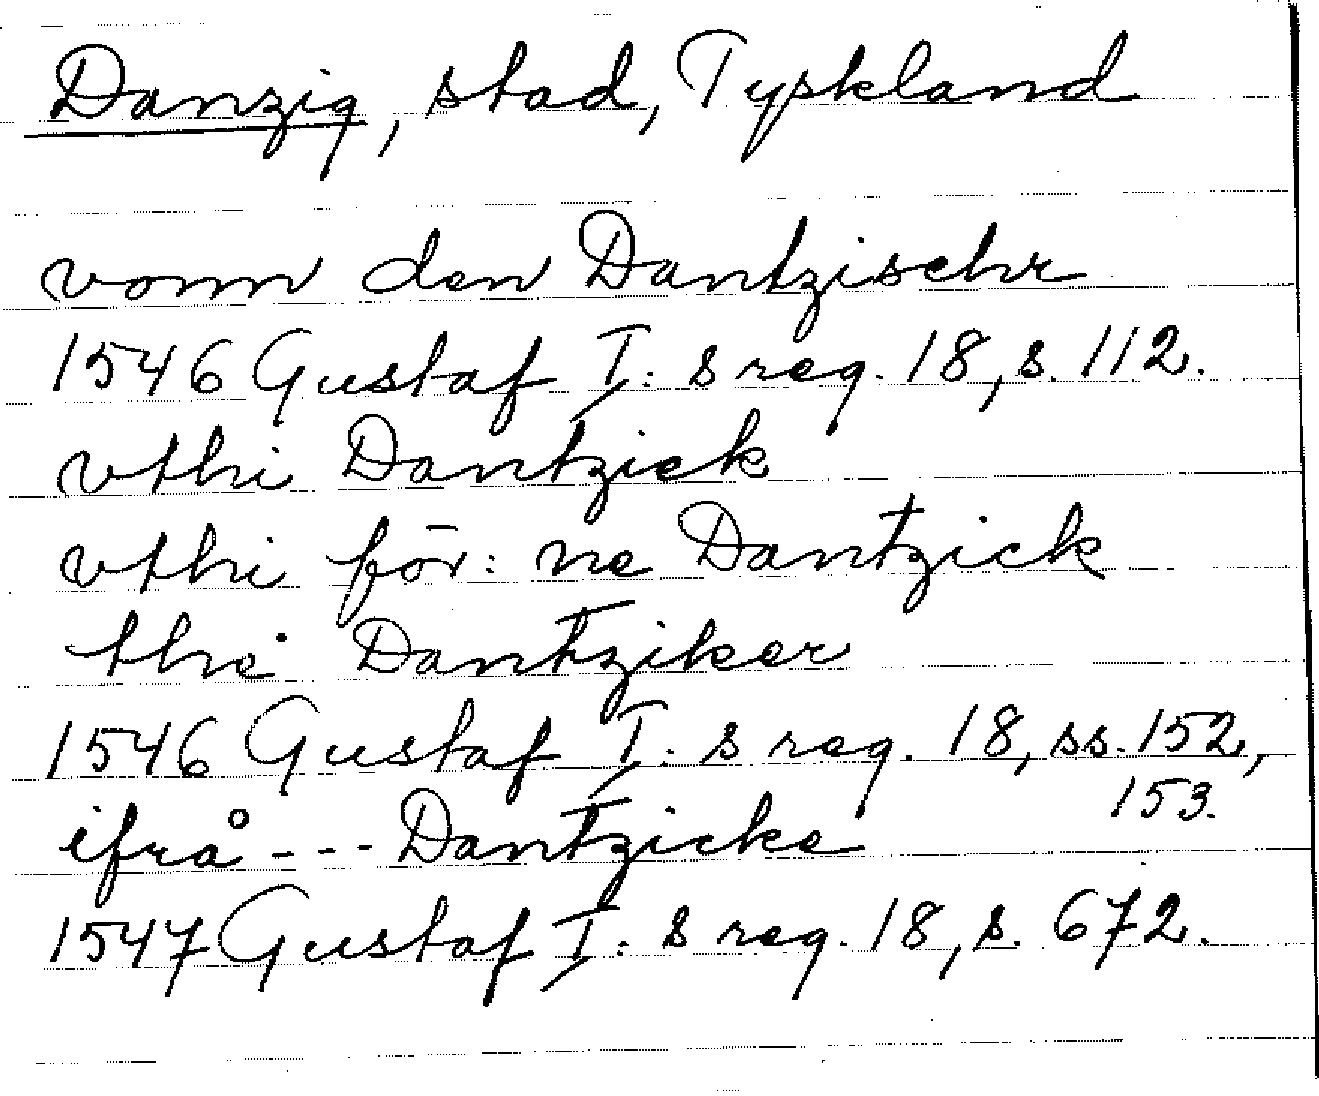 Danzig, stad, Tyskland
vonn den Dantzischr
1546 Gustaf I: s reg. 18, s. 112.
vthi Dantzick
vthi för: ne Dantzick
the Dantziker
1546 Gustaf I: s reg. 18, ss. 152,
153.
ifrå --- Dantzicke
1547 Gustaf I: s reg. 18, s. 672.